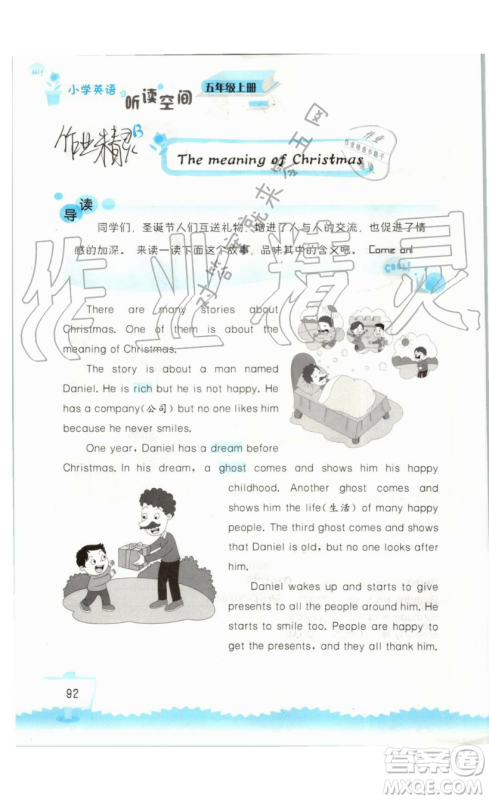 小学英语
听读空间
五年级上册
作业精灵
The meaning of Christmas
对答案就来零五网
导读
同学们，圣诞节人们互送礼物，增进了人与人的交流，也促进了情
感的加深。 来读一读下面这个故事，品味其中的含义吧。 Come on!
COOL!
作业精灵
There are many stories about
Christmas. One of them is about the
meaning of Christmas.
The story is about a man named
Daniel. He is rich but he is not happy. He
has a company(公司) but no one likes him
because he never smiles.
One year, Daniel has a dream before
Christmas. In his dream, a ghost comes and shows him his happy
childhood. Another ghost comes and
shows him the life(生活) of many happy
people. The third ghost comes and shows
that Daniel is old, but no one looks after
him.
Daniel wakes up and starts to give
presents to all the people around him. He
starts to smile too. People are happy to
get the presents, and they all thank him.
92
答案圈
MXQE.COM